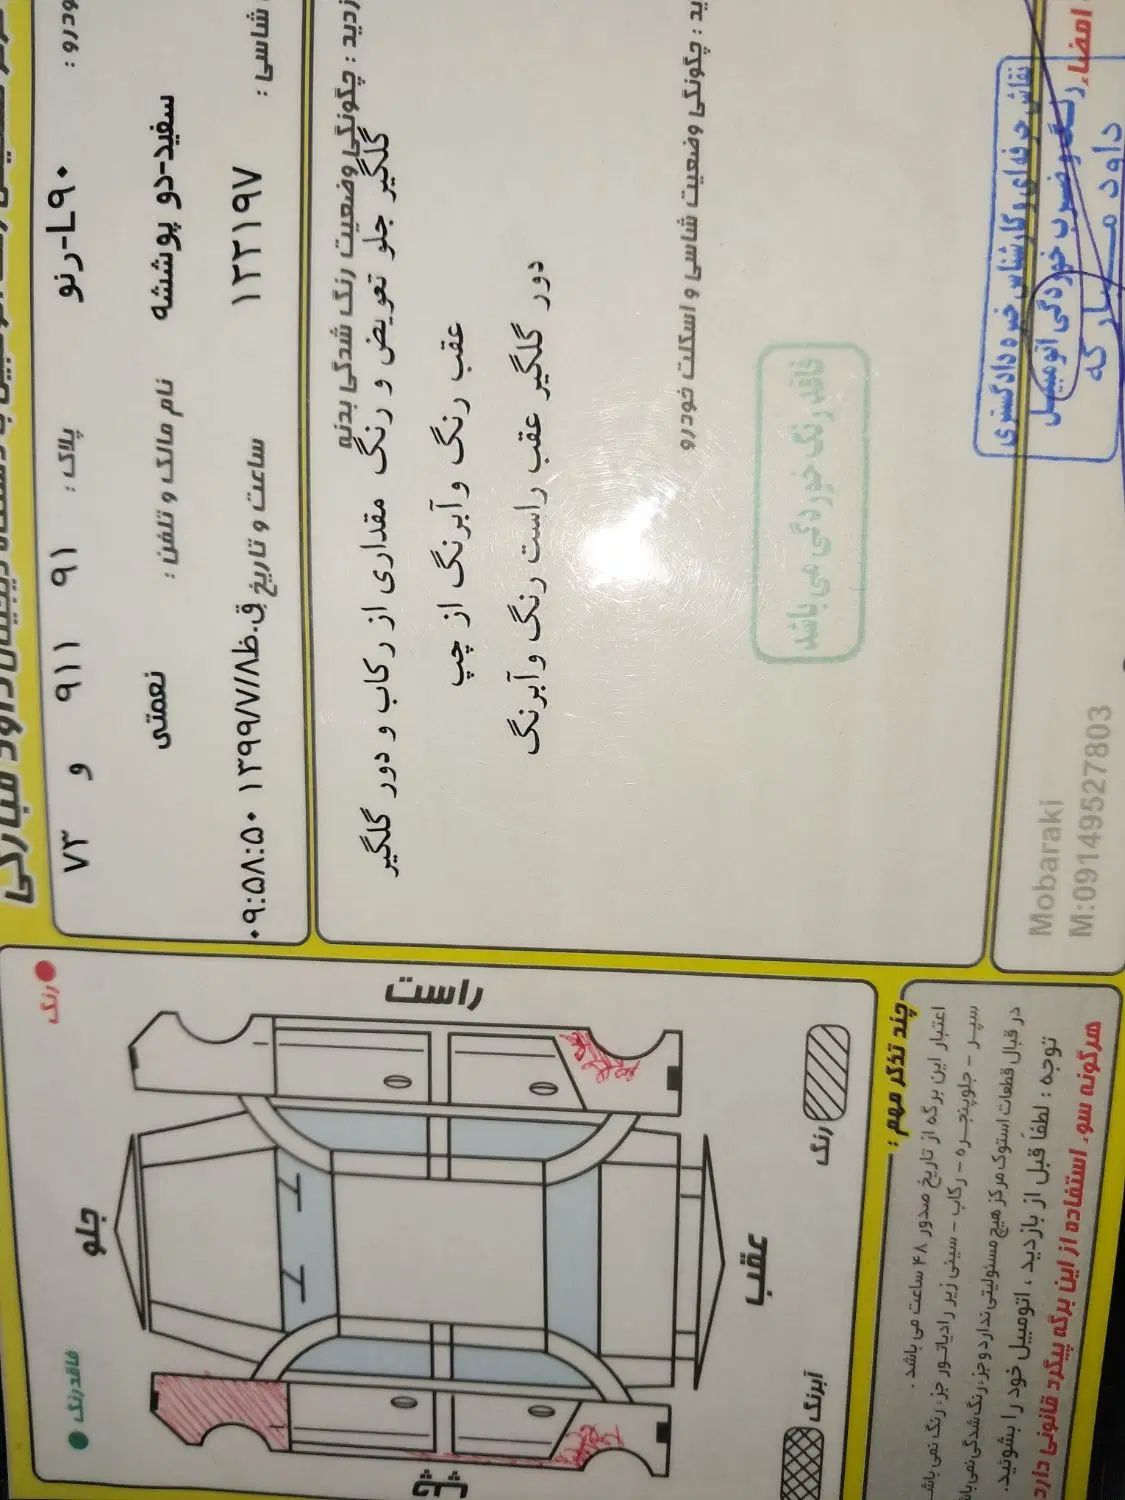 داود مبارکی
ودرو :
رنو-L۹۰
پلاک :
۹۱ ۹۱۱ و ۷۳
سفید-دو پوششه
نام مالک و تلفن :
نعمتی
شاسی :
۱۲۲۱۹۷
ساعت و تاریخ
۰۹:۵۸:۵۰ ۱۳۹۹/۷/۸ ق.ظ
زدید : چگونگی وضعیت رنگ شدگی بدنه
گلگیر جلو تعویض و رنگ مقداری از رکاب و دور گلگیر
عقب رنگ وآبرنگ از چپ
دور گلگیر عقب راست رنگ وآبرنگ
ید : چگونگی وضعیت شاسی و اسکلت خودرو
فاقد رنگ خوردگی می باشد
امضاء
نقاش حرفه ای و کارشناس خبره دادگستری
رنگ و ضرب خوردگی اتومبیل
داود مبارکه
Mobaraki
M:09149527803
رنگ
فاقد رنگ
راست
جلو
عقب
چپ
رنگ
آبرنگ
چند تذکر مهم :
اعتبار این برگه از تاریخ صدور ۴۸ ساعت می باشد .
سپر - جلوپنجره - رکاب - سینی زیر رادیاتور جزء رنگ نمی باشد
در قبال قطعات استوک مرکز هیچ مسئولیتی ندارد و جزء رنگ شدگی نمی باش
توجه : لطفاً قبل از بازدید ، اتومبیل خود را بشوئید.
هرگونه سوء استفاده از این برگه پیگرد قانونی دارد